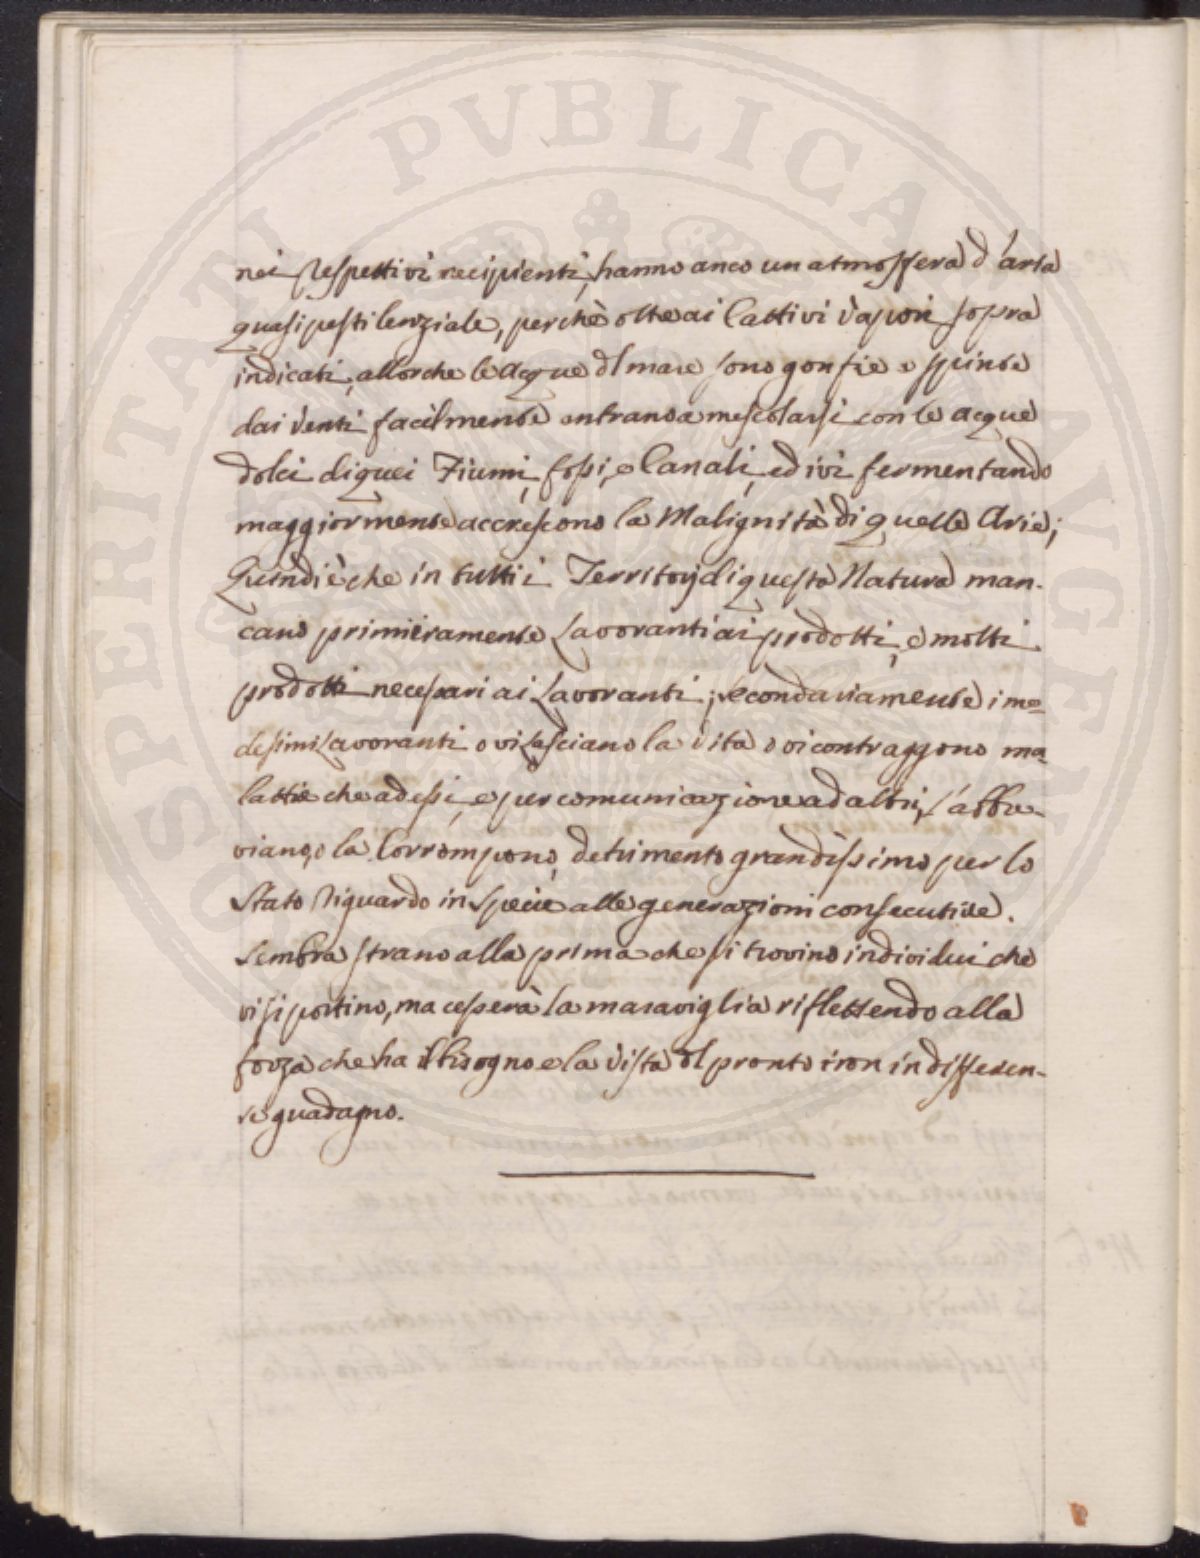 nei respettivi recipienti, hanno anco un atmosffera d'aria
quasi pestilenziale, perchè oltre ai Cattivi Vapori sopra
indicati, allorche le Acque dl mare sono gonfie e spinte
dai Venti facilmente entrano a mescolarsi con le acque
dolci di quei Fiumi, fossi, e Canali, ed ivi fermentando
maggiormente accrescono la Malignità di quelle Arie;
Quindi è che in tutti i Territorj di questa Natura man-
cano primieramente Lavoranti ai prodotti, e molti
prodotti necessari ai Lavoranti; secondariamente i me-
desimi Lavoranti o vi Lasciano la Vita o vi contraggono ma-
lattie che ad essi, e per comunicazione ad altri, l'abbre-
viano, o la Corrompono, detrimento grandissimo per lo
Stato riguardo in specie alle generazioni consecutive.
Sembra strano alla prima che si trovino individui che
vi si portino, ma cesserà la maraviglia riflettendo alla
forza che ha il bisogno e la Vista dl pronto e non indifferen-
te guadagno.
SPERITATI PVBLICAE AVGENDAE